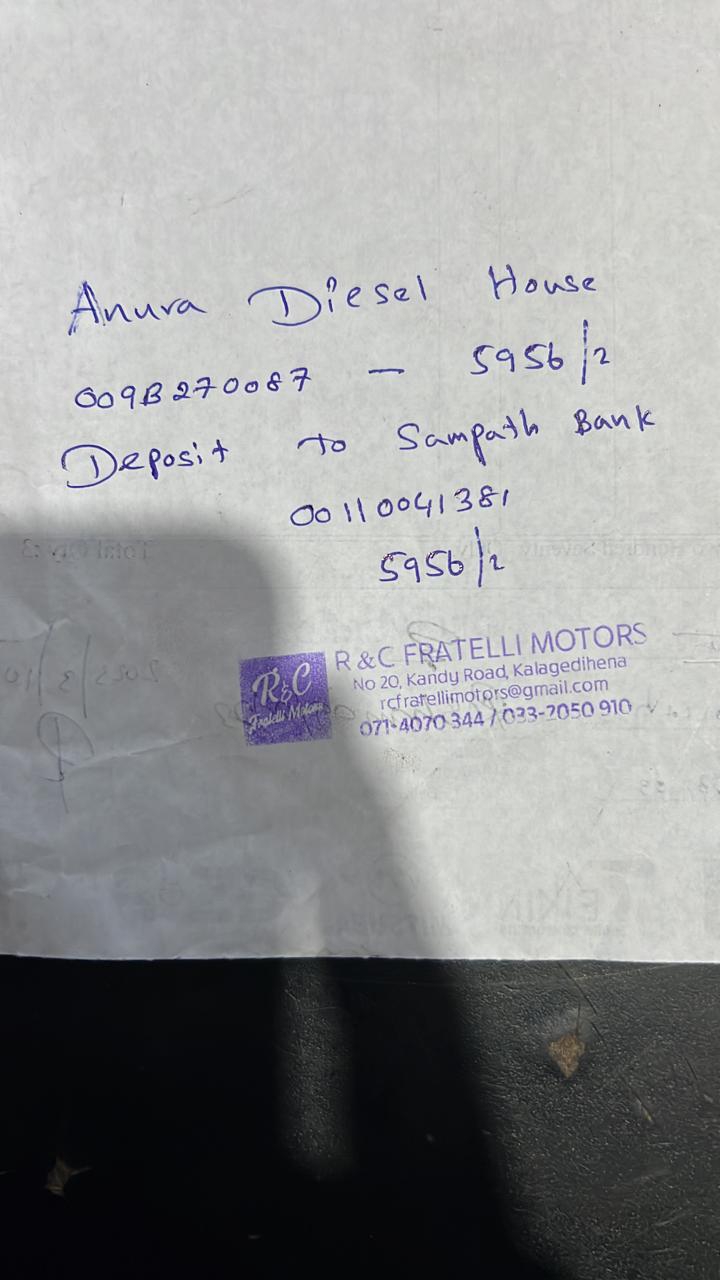 Anura Diesel House
009B270087 — 5956/2
Deposit to Sampath Bank
00110041381
5956/2
R&C
Fratelli Motors
R & C FRATELLI MOTORS
No 20, Kandy Road, Kalagedihena
rcfratellimotors@gmail.com
071-4070 344 / 033-2050 910
Total Qty :